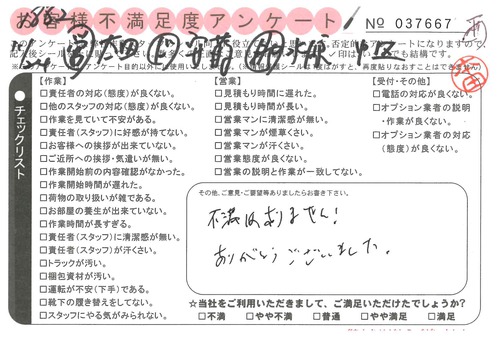 お客様不満足度アンケート
No 037667
チェックリスト
【作業】
□責任者の対応(態度)が良くない。
□他のスタッフの対応(態度)が良くない。
□作業を見ていて不安がある。
□責任者(スタッフ)に好感が持てない。
□お客様への挨拶が出来ていない。
□ご近所への挨拶・気遣いが無い。
□作業開始前の内容確認がなかった。
□作業開始時間が遅れた。
□荷物の取り扱いが雑である。
□お部屋の養生が出来ていない。
□作業時間が長すぎる。
□責任者(スタッフ)に清潔感が無い。
□責任者(スタッフ)が汗くさい。
□トラックが汚い。
□梱包資材が汚い。
□運転が不安(下手)である。
□靴下の履き替えをしてない。
□スタッフにやる気がみられない。
【営業】
□見積もり時間に遅れた。
□見積もり時間が長い。
□営業マンに清潔感が無い。
□営業マンが煙草くさい。
□営業マンが汗くさい。
□営業態度が良くない。
□営業の説明と作業が一致してない。
【受付・その他】
□電話の対応が良くない。
□オプション業者の説明
・作業が良くない。
□オプション業者の対応
(態度)が良くない。
その他、ご意見・ご要望等ありましたらお書き下さい。
不満はありません!
ありがとうございました。
☆当社をご利用いただきまして、ご満足いただけたでしょうか?
□不満 □やや不満 □普通 □やや満足 □満足